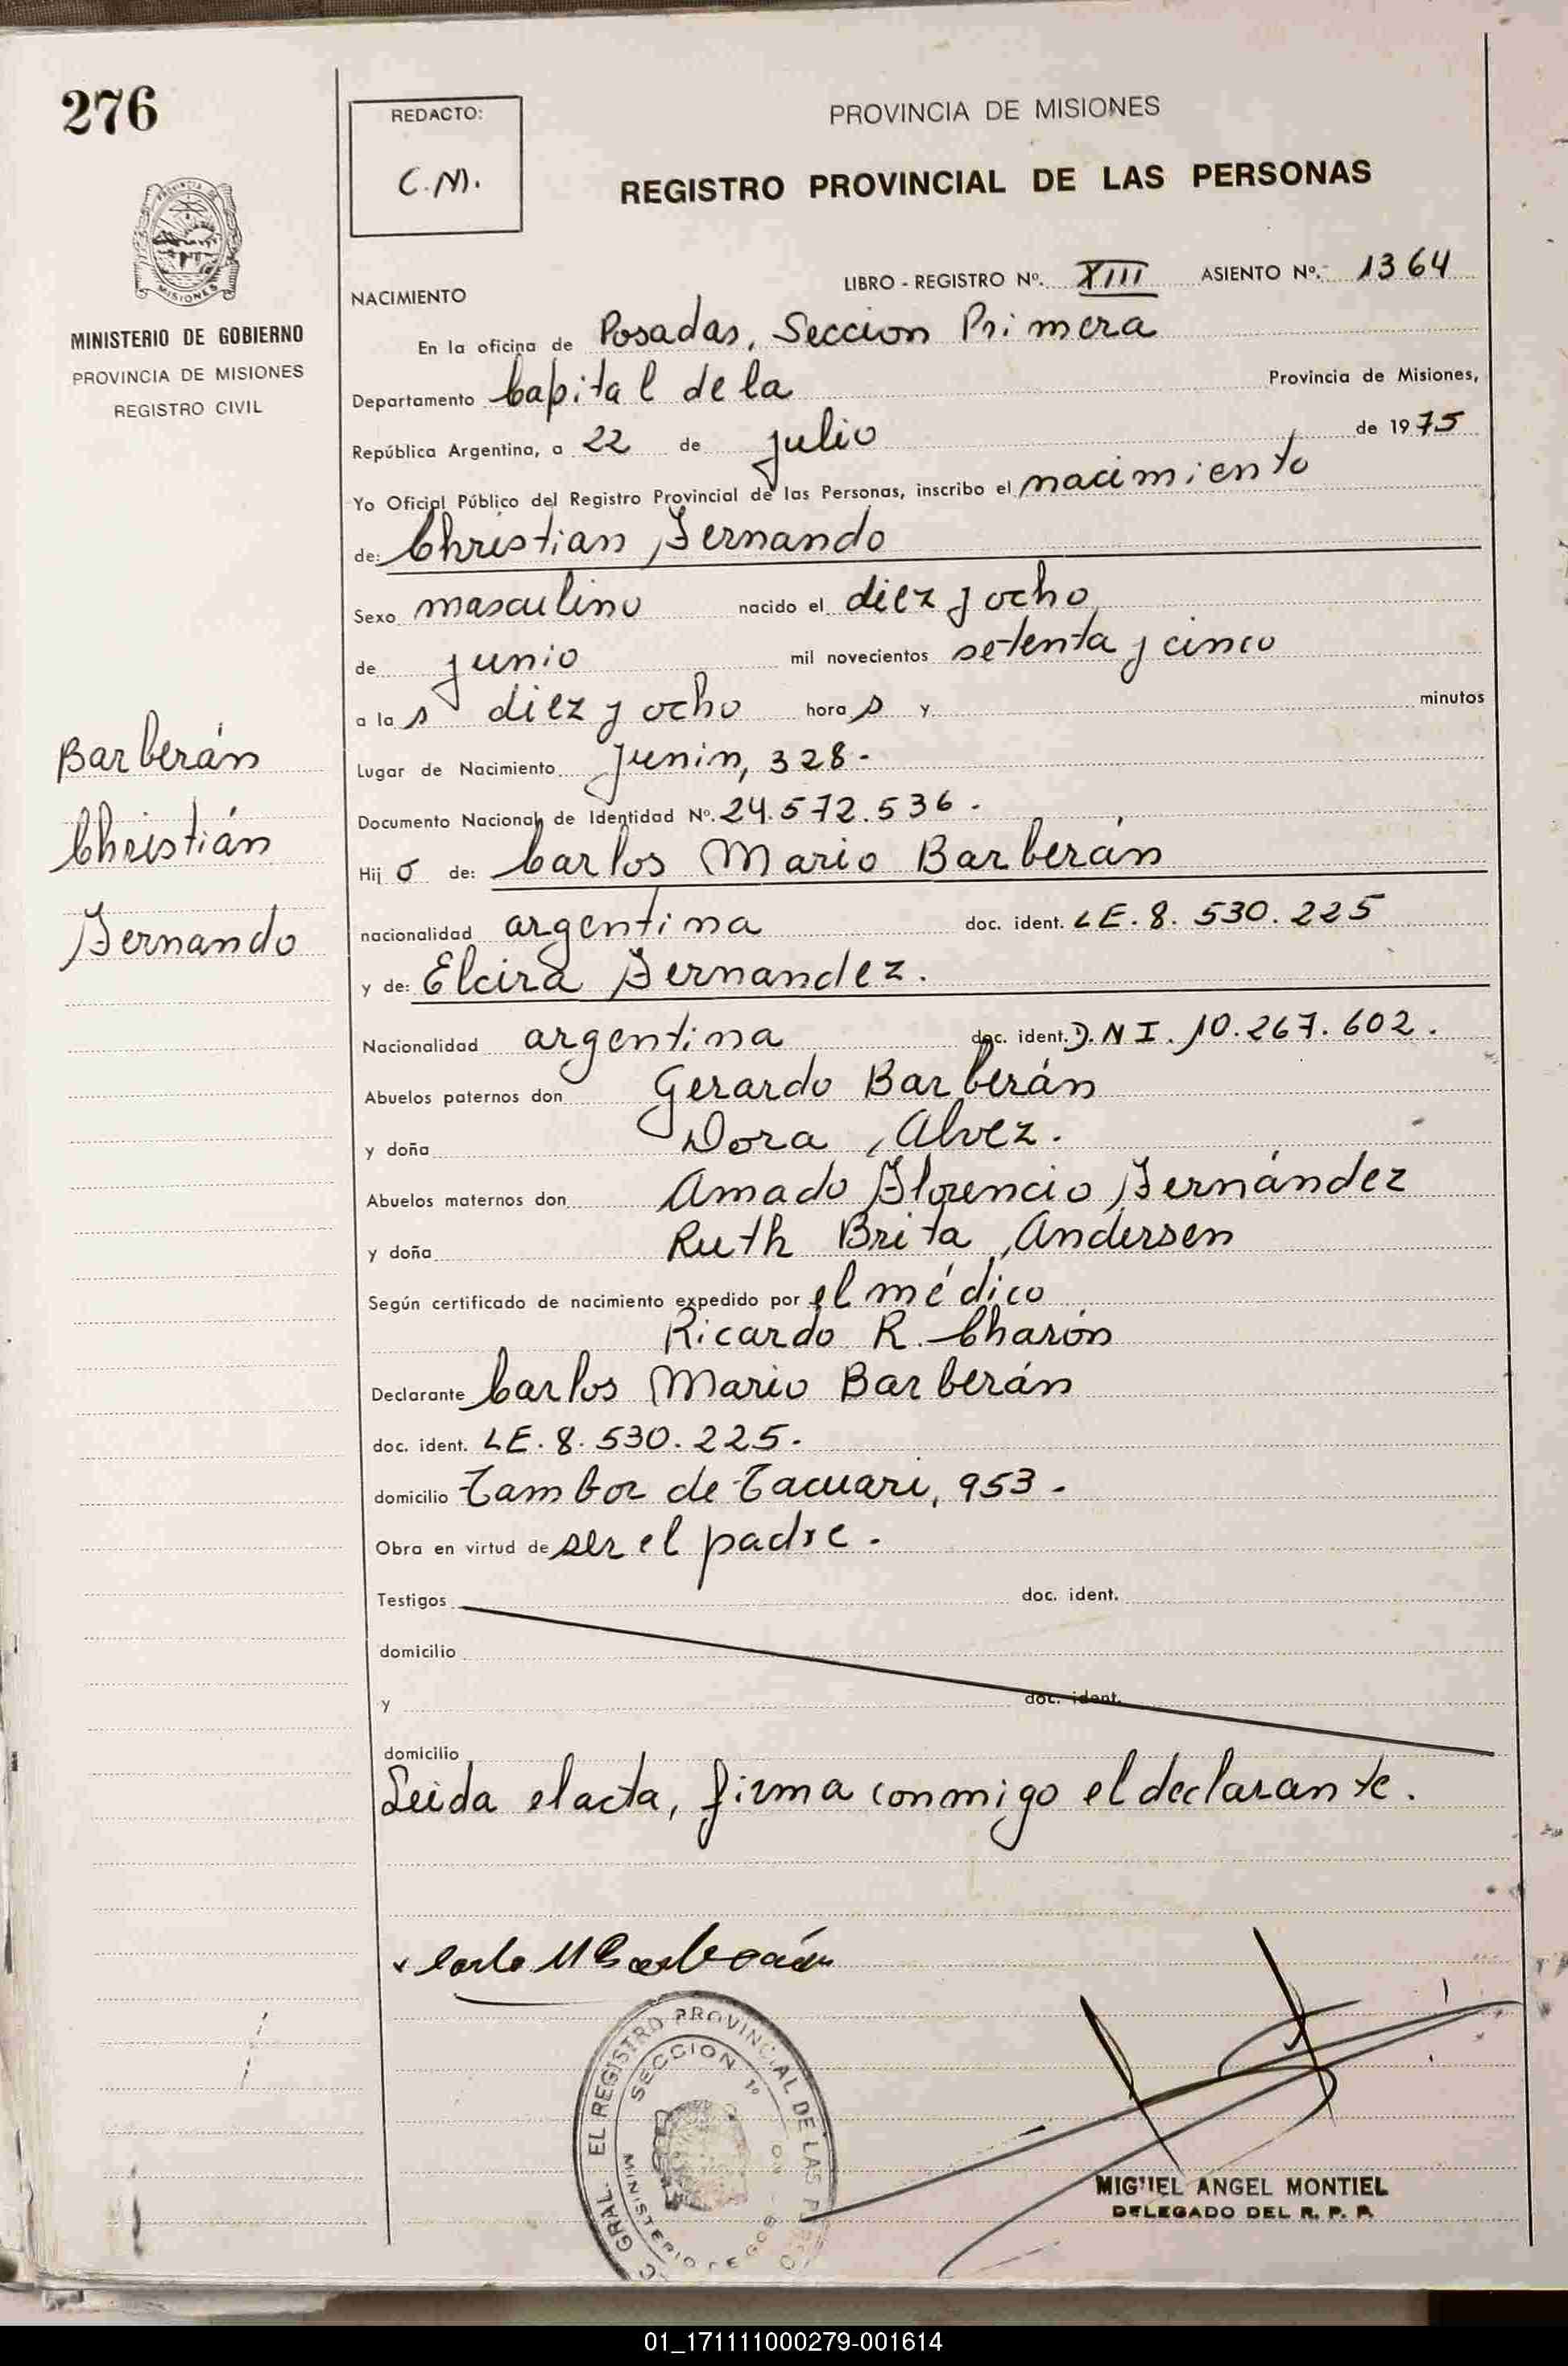 276
REDACTO:
C.M.
PROVINCIA DE MISIONES
REGISTRO PROVINCIAL DE LAS PERSONAS
MISIONES
MINISTERIO DE GOBIERNO
PROVINCIA DE MISIONES
REGISTRO CIVIL
LIBRO - REGISTRO Nº. XIII ASIENTO Nº.- 1364
NACIMIENTO
En la oficina de Posadas, Seccion Primera
Departamento Capital de la Provincia de Misiones,
República Argentina, a 22 de julio de 1975
Yo Oficial Público del Registro Provincial de las Personas, inscribo el nacimiento
de: Christian Fernando
Sexo masculino nacido el diez y ocho
de junio mil novecientos setenta y cinco
a la s diez y ocho hora s y minutos
Lugar de Nacimiento Junin, 328-
Documento Nacional de Identidad Nº. 24.572.536.
Hij o de: Carlos Mario Barberán
nacionalidad argentina doc. ident. LE. 8. 530. 225
y de: Elcira Fernandez.
Nacionalidad argentina doc. ident. D.N I. 10.267.602.
Abuelos paternos don Gerardo Barberán
y doña Dora Alvez.
Abuelos maternos don Amado Florencio Fernández
y doña Ruth Brita Andersen
Según certificado de nacimiento expedido por el médico
Ricardo R. Charón
Declarante Carlos Mario Barberán
doc. ident. LE. 8. 530. 225.
domicilio Tambor de Tacuari, 953-
Obra en virtud de ser el padre.
Testigos doc. ident.
domicilio
y doc. ident.
domicilio
Leida el acta, firma conmigo el declarante.
Barberán
Christián
Fernando
Carlo M Barberán
GRAL. EL REGISTRO PROVINCIAL DE LAS
SECCION 1º
MINISTERIO DE GOB
MIGUEL ANGEL MONTIEL
DELEGADO DEL R. P. P.
01_171111000279-001614